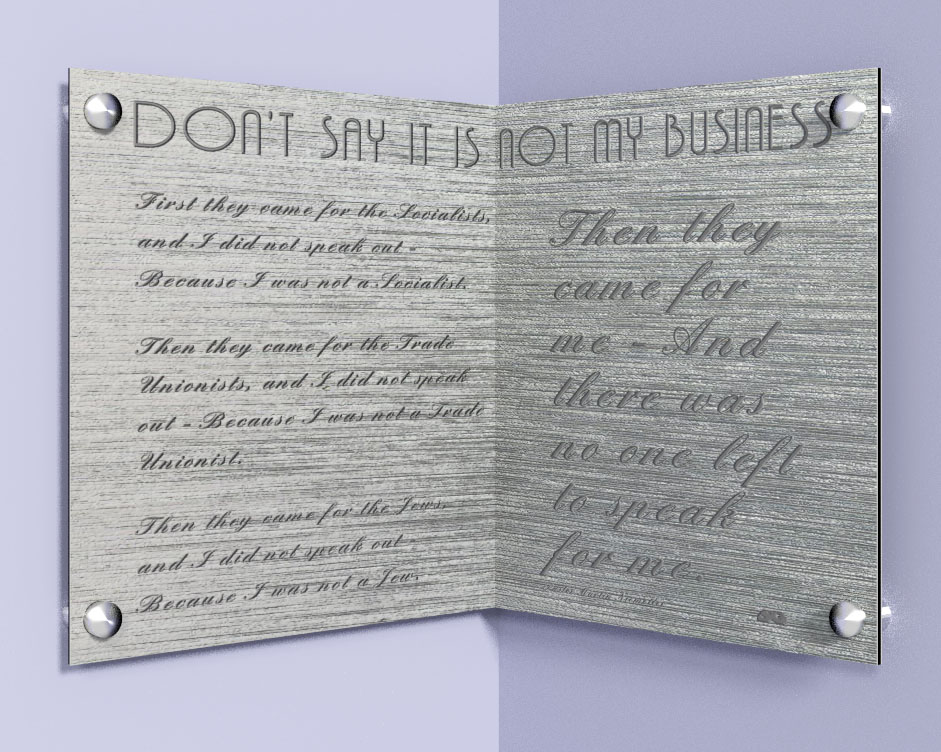 DON'T SAY IT IS NOT MY BUSINESS
First they came for the Socialists,
and I did not speak out -
Because I was not a Socialist.
Then they came for the Trade
Unionists, and I did not speak
out - Because I was not a Trade
Unionist.
Then they came for the Jews,
and I did not speak out -
Because I was not a Jew.
Then they
came for
me - And
there was
no one left
to speak
for me.
Martin Niemöller